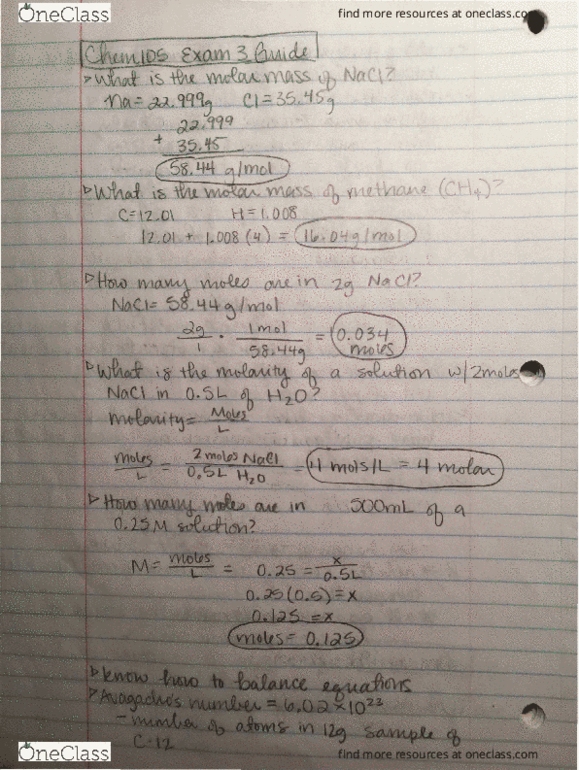 OneClass
find more resources at oneclass.co
Chem 105 Exam 3 Guide
What is the molar mass of NaCl?
Na = 22.999g Cl = 35.45g
22.999
+ 35.45
58.44 g/mol
What is the molar mass of methane (CH4)?
C = 12.01 H = 1.008
12.01 + 1.008 (4) = 16.04 g/mol
How many moles are in 2g NaCl?
NaCl = 58.44 g/mol
2g/1 · 1mol/58.44g = 0.034 moles
What is the molarity of a solution w/ 2 moles
NaCl in 0.5L of H2O?
molarity = Moles/L
moles/L = 2 moles NaCl/0.5L H2O = 4 mols/L = 4 molar
How many moles are in 500mL of a
0.25 M solution?
M = moles/L = 0.25 = x/0.5L
0.25 (0.5) = x
0.125 = x
moles = 0.125
know how to balance equations
Avogadro's number = 6.02 x 10^23
- number of atoms in 12g sample of
C-12
OneClass
find more resources at oneclass.com